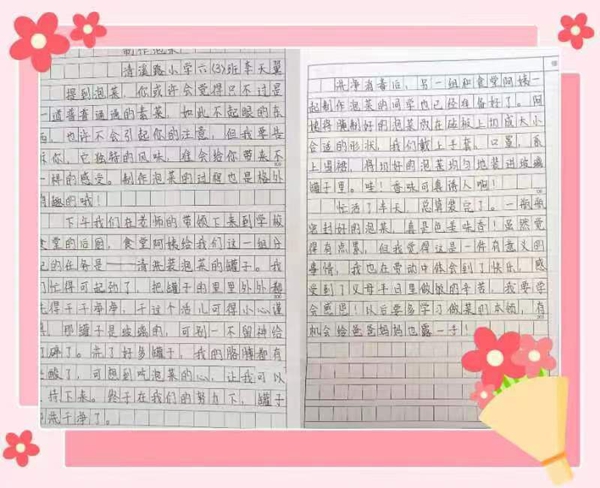 制作泡菜
清溪路小学六(3)班李天翼
提到泡菜，你或许会觉得只不过是
一道普普通通的素菜，如此不起眼的东
西，也许不会引起你的注意，但我要告
诉你，它独特的风味，准会给你带来不
一样的感受。制作泡菜的过程也是格外
有趣的哦！
下午我们在老师的带领下来到学校
食堂的后厨，食堂阿姨给我们这一组分
配的任务是——清洗装泡菜的罐子。我
们忙得可起劲了，把罐子的里里外外都
洗得干干净净，干这个活儿可得小心谨
慎，那罐子是玻璃的，可别一不留神给
打碎了。洗了好多罐子，我的胳膊都有
些酸了，可想到吃泡菜的心，让我可以
坚持下来。终于在我们的努力下，罐子
都洗干净了。
洗净消毒后，另一组和食堂阿姨一
起制作泡菜的同学也已经准备好了。阿
姨将腌制好的泡菜放在砧板上切成大小
合适的形状，我们戴上手套、口罩，系
上围裙，将切好的泡菜均匀地装进玻璃
罐子里。哇！香味可真诱人啊！
忙活了半天，总算装完了。一瓶瓶
密封好的泡菜，真是色美味香！虽然觉
得有点累，但我觉得这是一件有意义的
事情，我也在劳动中体会到了快乐。感
受到了父母平日里做饭的辛苦，我要学
会感恩！以后要多学习做菜的本领，有
机会给爸爸妈妈也露一手！